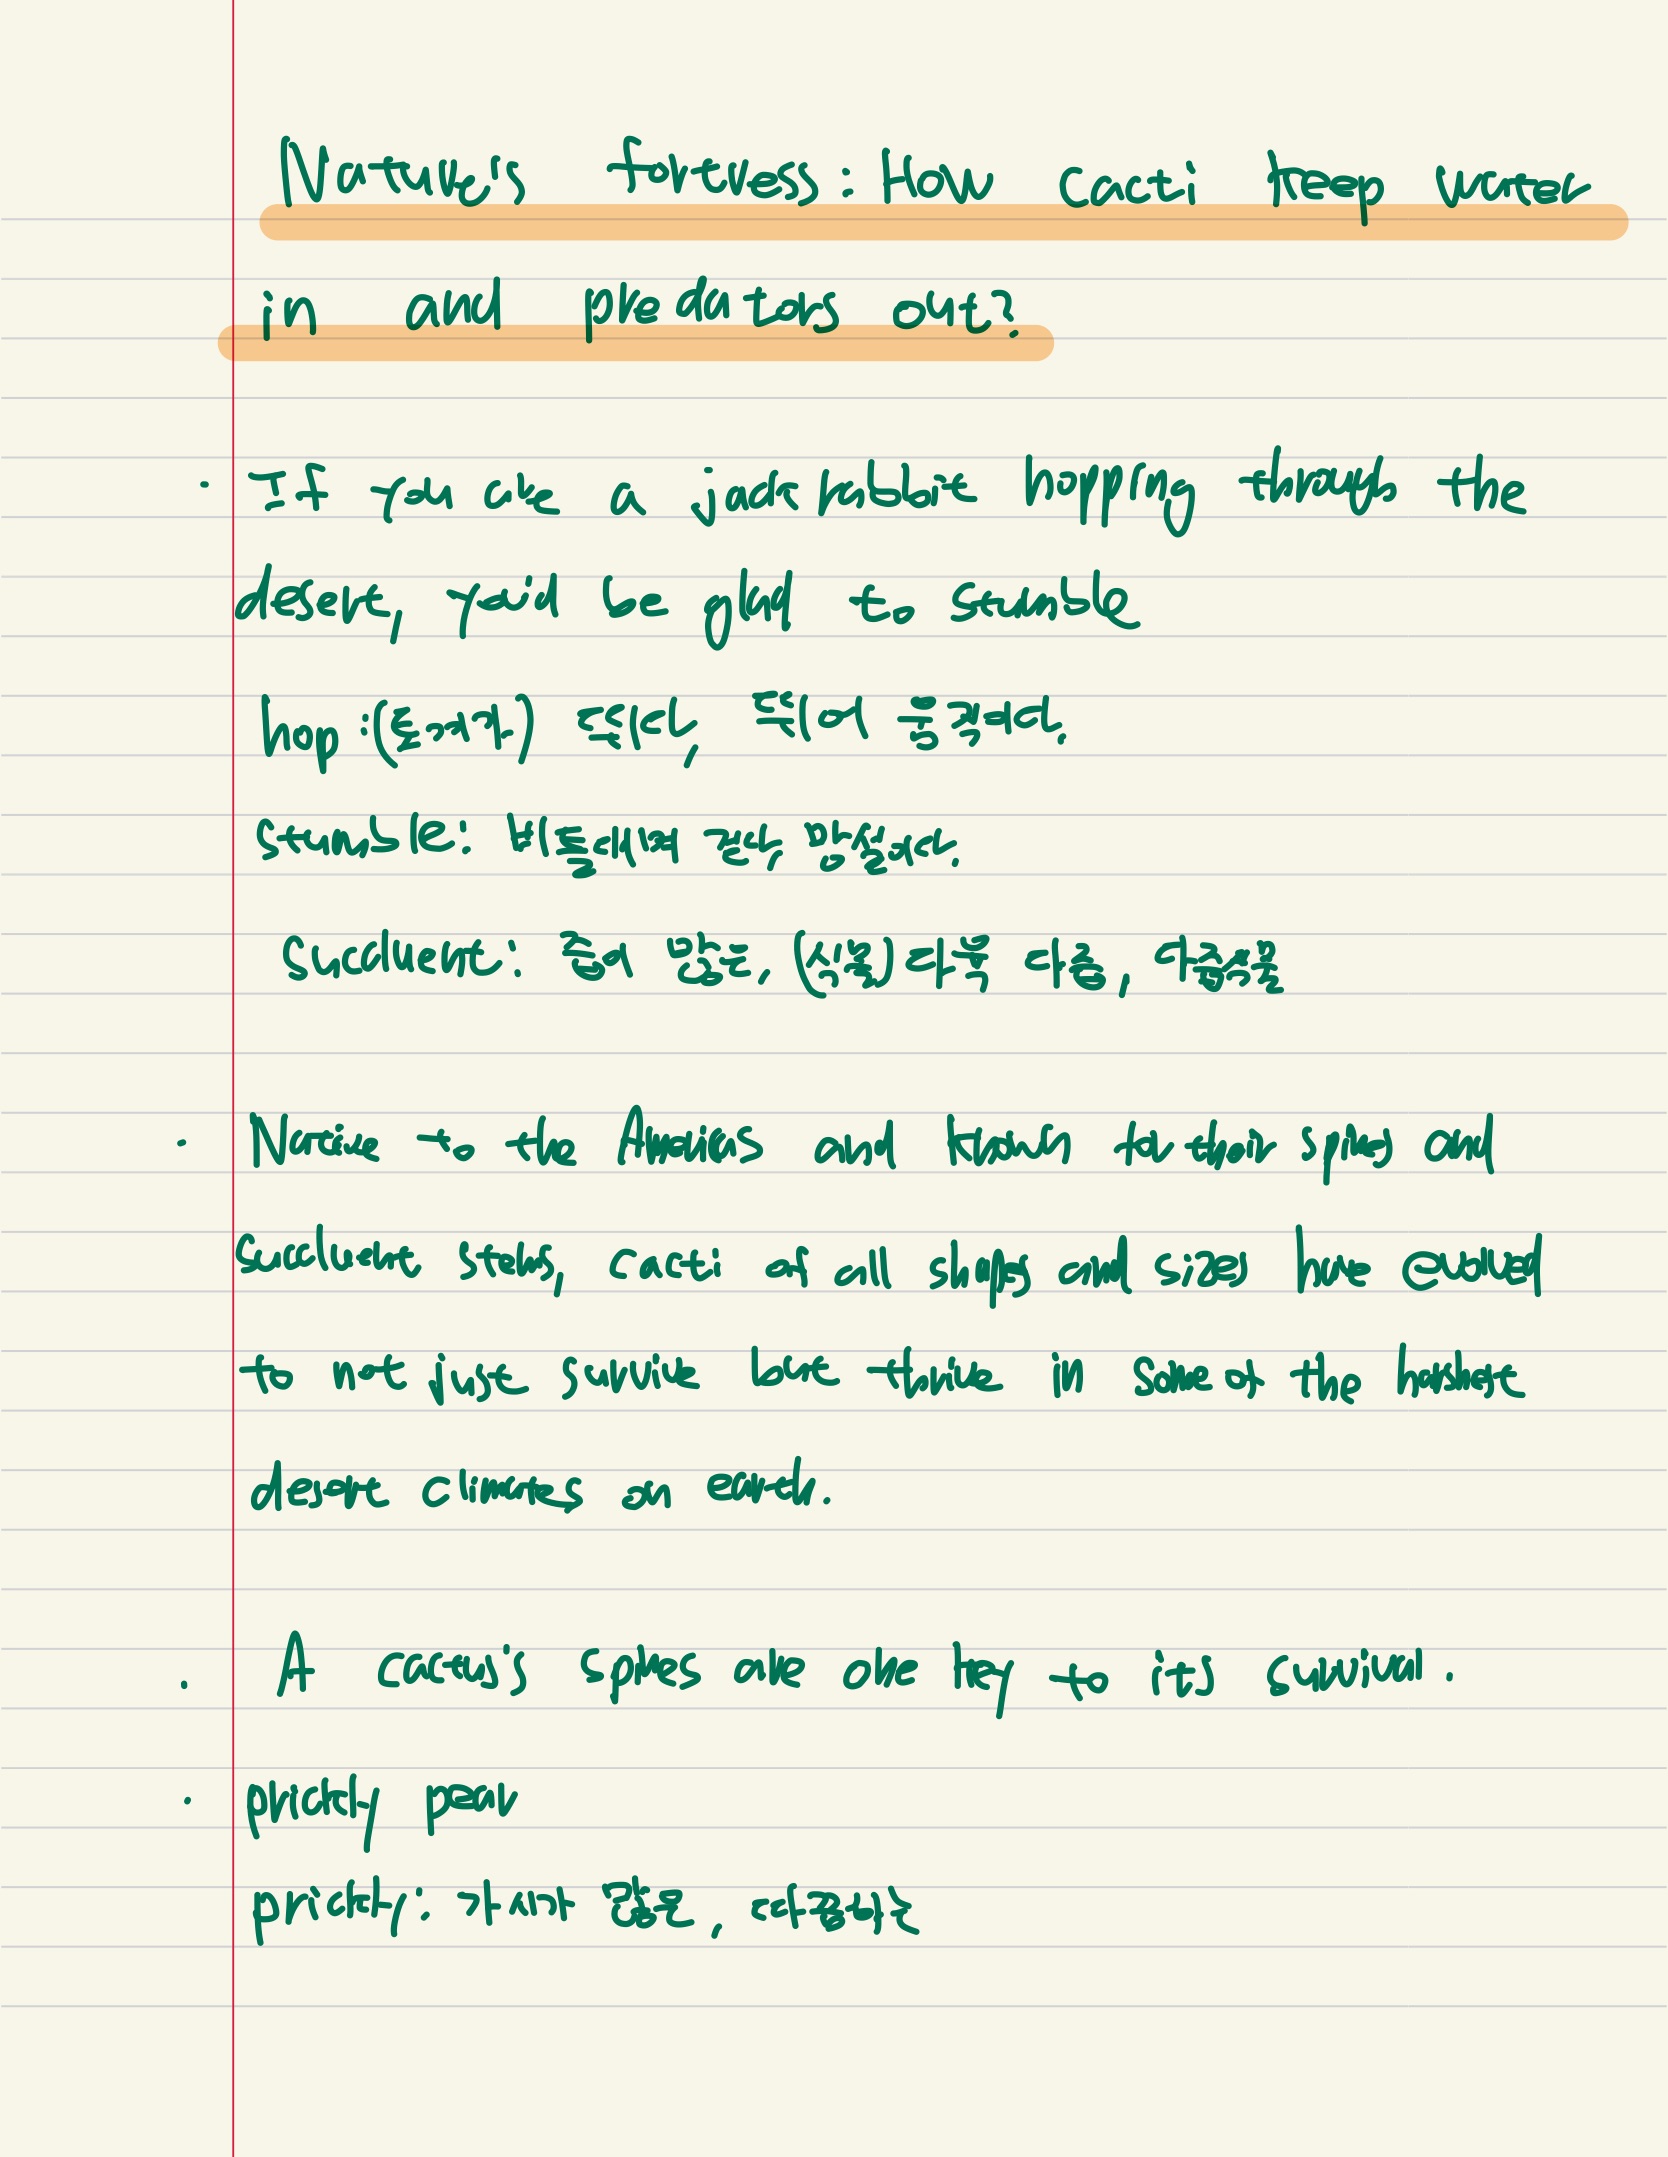 Nature's fortress: How cacti keep water
in and predators out?
· If you are a jack rabbit hopping through the
desert, you'd be glad to stumble
hop : (토끼가) 뛰다, 뛰어 움직이다.
stumble: 비틀대며 걷다, 망설이다.
Succluent: 즙이 많은, (식물) 다육 다즙, 다즙식물
· Native to the Americas and known for their spines and
succluent stems, cacti of all shapes and sizes have evolved
to not just survive but thrive in some of the harshest
desert climates on earth.
· A cactus's spines are one key to its survival.
· prickly pear
prickly: 가시가 많은, 따끔하는